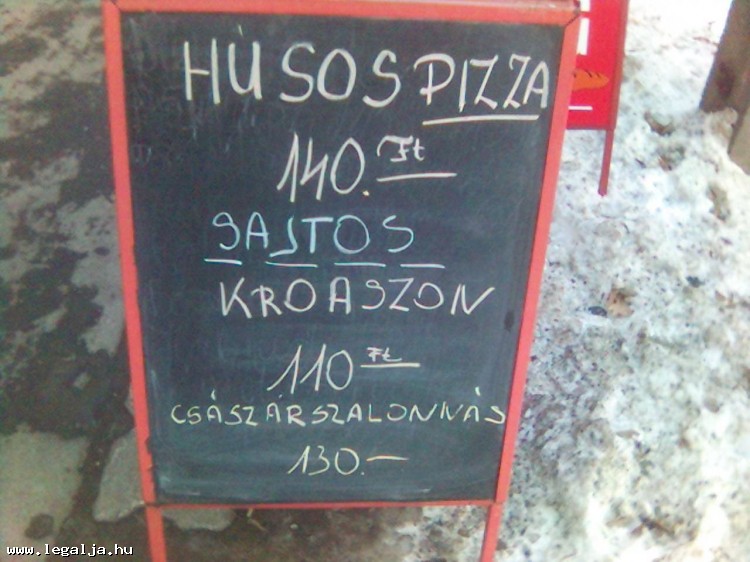 HÚSOS PIZZA
140.Ft
SAJTOS
KROASZON
110 Ft
CSÁSZÁRSZALONNÁS
130.-
www.legalja.hu